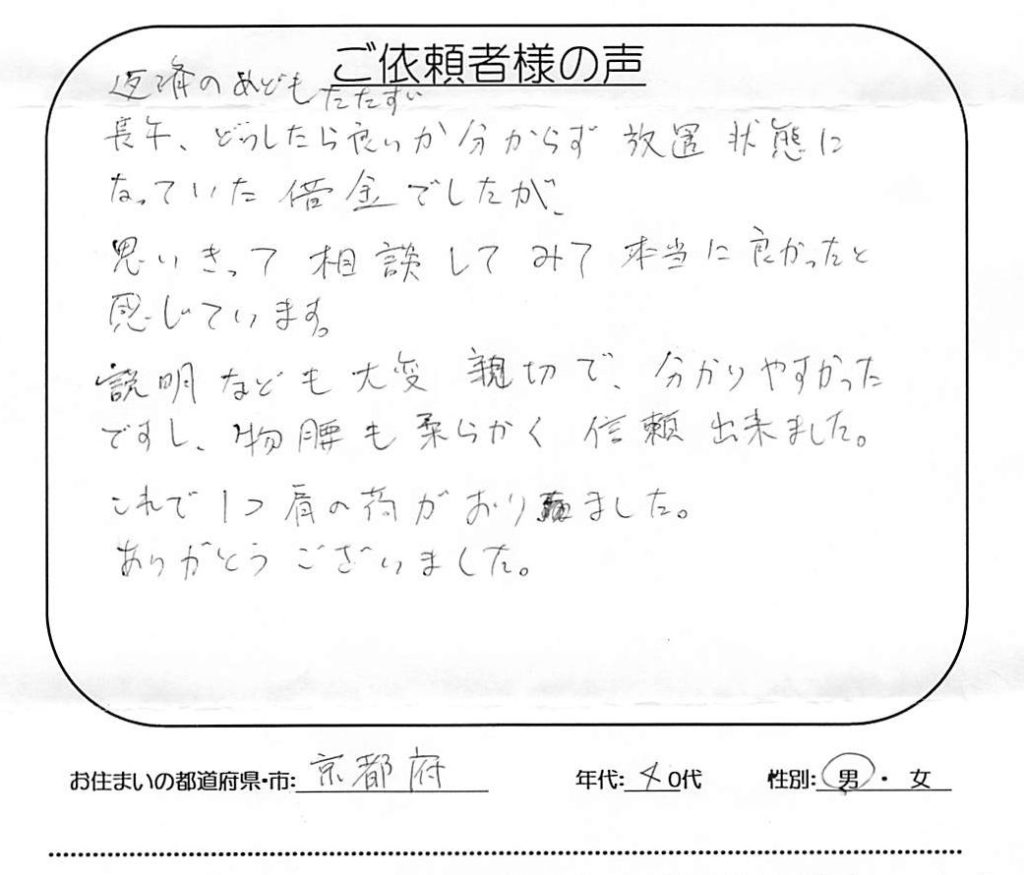 ご依頼者様の声
返済のめどもたたず
長年、どうしたら良いか分からず 放置状態に
なっていた借金でしたが、
思いきって相談してみて本当に良かったと
感じています。
説明なども大変 親切で、分かりやすかった
ですし、物腰も柔らかく 信頼出来ました。
これで1つ肩の荷がおりました。
ありがとうございました。
お住まいの都道府県・市: 京都府 年代: 40代 性別: 男・女